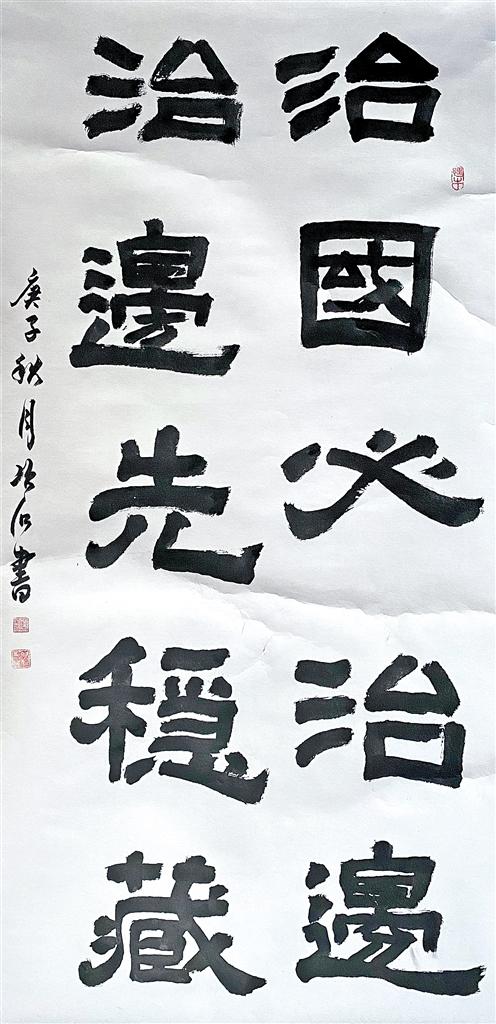 治國必治邊
治邊先穩藏
庚子秋月於石書